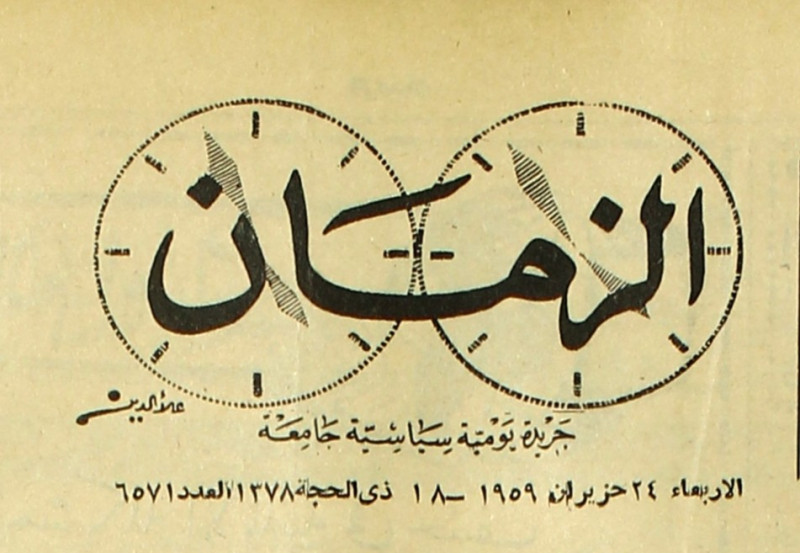 الزمان
علاء الدين
جريدة يومية سياسية جامعة
الاربعاء ٢٤ حزيران ١٩٥٩ – ١٨ ذى الحجة ١٣٧٨ العدد ٦٥٧١